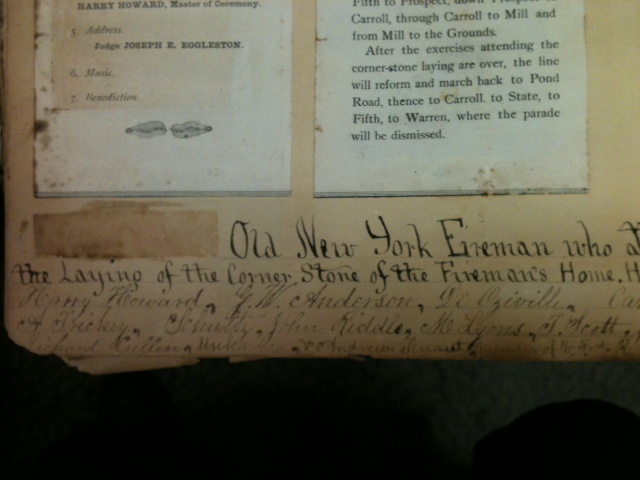 HARRY HOWARD, Master of Ceremony.
5. Address.
Judge JOSEPH E. EGGLESTON.
6. Music.
7. Benediction
Fifth to Prospect, down Prospect to
Carroll, through Carroll to Mill and
from Mill to the Grounds.
After the exercises attending the
corner-stone laying are over, the line
will reform and march back to Pond
Road, thence to Carroll, to State, to
Fifth, to Warren, where the parade
will be dismissed.
Old New York Fireman who at
the Laying of the Corner Stone of the Fireman's Home, H
Harry Howard, G. W. Anderson,
John Riddle, M Lyons, T. Scott,